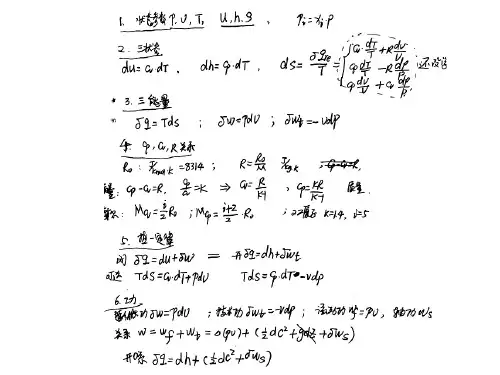 1. 状态参数 P, U, T, U, h, S , Pi = xi·P
2. 三状态
du = Cv·dT , dh = Cp·dT , ds = δqR/T = Cv·dT/T + R dv/v
Cp dT/T − R dp/p
Cp dv/v + Cv dp/p
* 3. 三能量
δq = Tds ; δw = pdv ; δwt = −vdp
Cp, Cv, R 关系
R0 : J/kmol·K = 8314 ; R = R0/M J/kg·K
Cp − Cv = R, Cp/Cv = K ⇒ Cv = R/K-1 , Cp = KR/K-1
MCv = i/2 R0 ; MCp = i+2/2 · R0 ; K=1.4, i=5
5. 热一定律
闭 δq = du + δw = 开 δq = dh + δwt
可逆 Tds = Cv·dT + pdv Tds = Cp·dT − vdp
6. 功
功 δw = pdv ; 技术功 δwt = −vdp ; 流动功 wf = pv, 轴功 ws
关系 w = wf + wt = Δ(pv) + (½dc² + gdz + δws)
开系 δq = dh + (½dc² + δws)